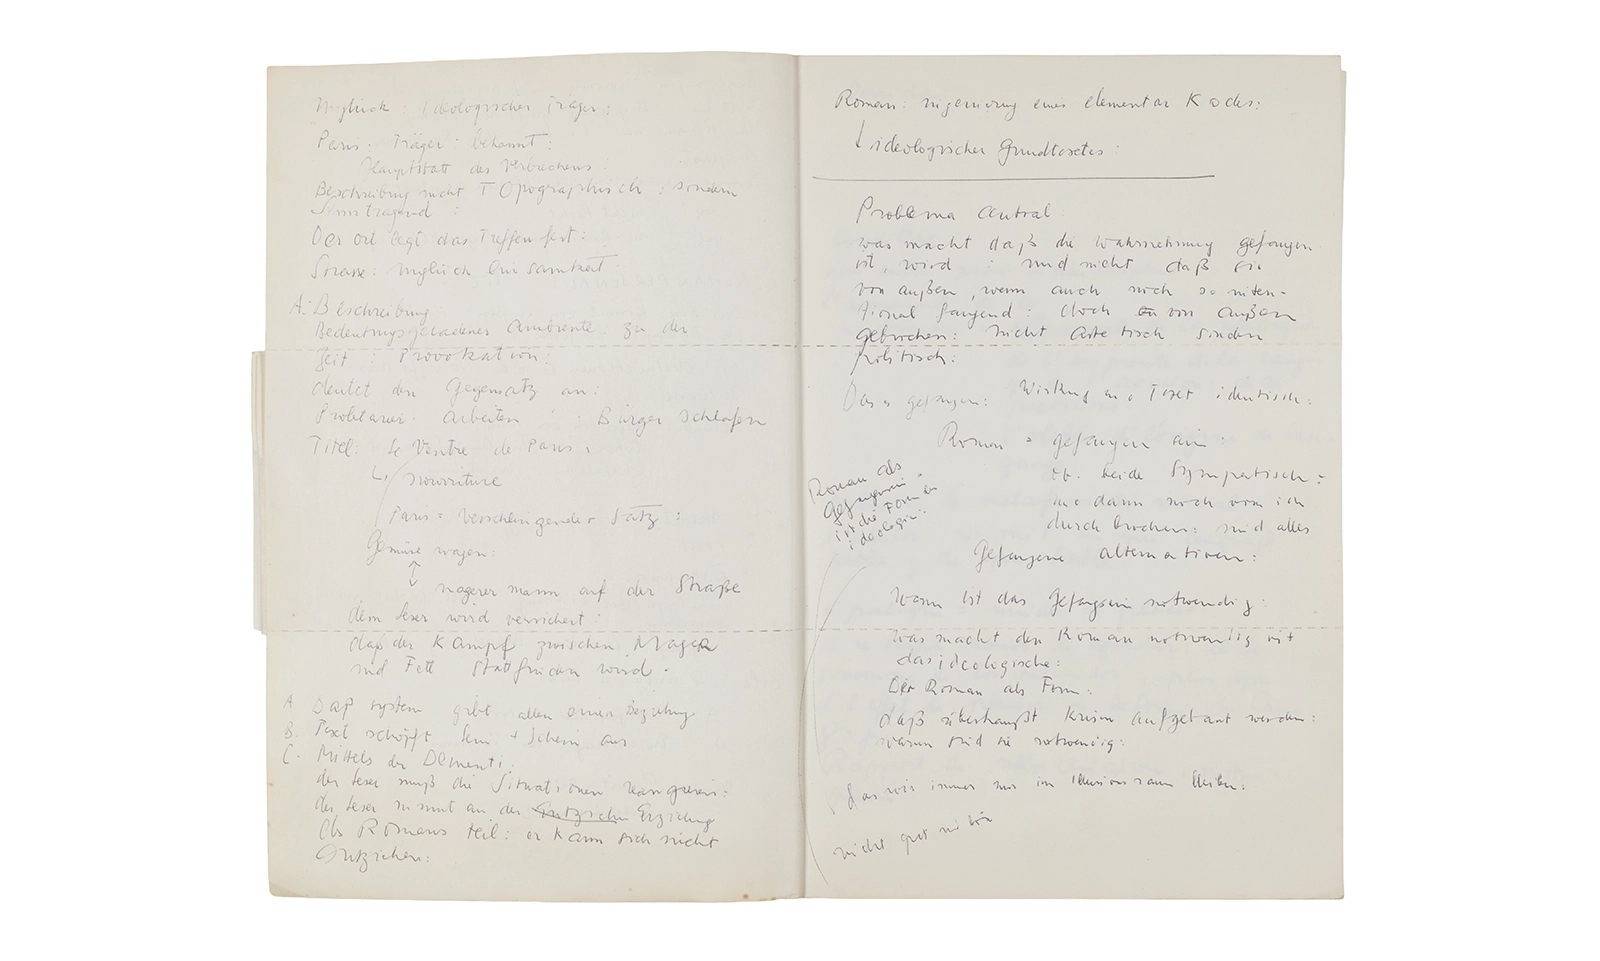 Unglück: Ideologischer Träger:
Paris: Träger bekannt:
Hauptstatt des Verbrechens
Beschreibung nicht Topographisch: sondern
Sinntragend:
Der ort legt das Treffen fest:
Strasse: unglück Einsamkeit:
A: Beschreibung
Bedeutungsgeladenes Ambiente zu der
Zeit: Provokation:
deutet den Gegensatz an:
Proletarier arbeiten: Bürger schlafen
Titel: Le Ventre de Paris:
↳ nourriture
Paris = verschlingender Satz:
Gemüse wagen:
↕
magerer mann auf der Straße
dem Leser wird versichert:
daß der Kampf zwischen Mager
und Fett stattfinden wird.
A Daß system gibt allem einen Beziehung
B. Text schöpft Sein + Schein aus
C. Mittels der Dementi:
der Leser muß die Situationen reagieren:
der Leser nimmt an der Erziehung
des Romans teil: er kann sich nicht
Entziehen:
Roman: eines elementar Kodes:
↓ ideologischer Grundtextes:
Problema central:
was macht daß die Wahrnehmung gefangen
ist, wird: und nicht daß sie
von außen, wenn auch noch so inten-
tional fangend: doch von außen
gebrochen: nicht ästetisch sondern
politisch:
Das gefangen: Wirkung und Text identisch:
Roman = gefangen sein:
beide Sympatisch:
und dann noch vom ich
durchbrochen: und alles
Gefangene alternativen:
Roman als
Gefangensein
ist die Form der
ideologie:
Wann ist das Gefangsein notwendig:
was macht den Roman notwendig mit
das ideologische:
Der Roman als Form:
daß überhaupt Krisen aufgebaut werden:
warum sind sie notwendig:
das wir immer nur im Illusionsraum bleiben:
nicht gut